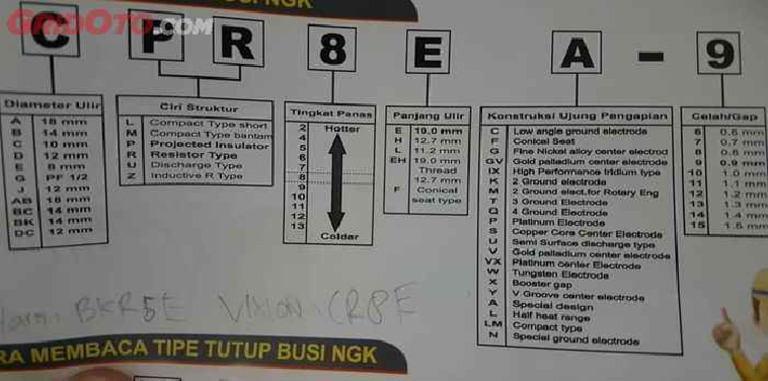 BUSI NGK
GRIDOTO.COM
C P R 8 E A - 9
Diameter Ulir
A 18 mm
B 14 mm
C 10 mm
D 12 mm
E 8 mm
G PF 1/2
J 12 mm
AB 18 mm
BC 14 mm
BK 14 mm
DC 12 mm
Ciri Struktur
L Compact Type short
M Compact Type bantam
P Projected Insulator
R Resistor Type
U Discharge Type
Z Inductive R Type
Tingkat Panas
2 Hotter
4
5
6
7
8
9
10
11
12
13 Colder
Panjang Ulir
E 19.0 mm
H 12.7 mm
L 11.2 mm
EH 19.0 mm
Thread
12.7 mm
F Conical
seat type
Konstruksi Ujung Pengapian
C Low angle ground electrode
F Conical Seat
G Fine Nickel alloy center electrod
GV Gold palladium center electrode
IX High Performance Iridium type
K 2 Ground electrode
M 2 Ground elect.for Rotary Eng
T 3 Ground Electrode
Q 4 Ground Electrode
P Platinum Electrode
S Copper Core Center Electrode
U Semi Surface discharge type
V Gold palladium center electrode
VX Platinum center Electrode
W Tungsten Electrode
X Booster gap
Y V.Groove center electrode
A Special design
L Half heat range
LM Compact type
N Special ground electrode
Celah/Gap
6 0.6 mm
7 0.7 mm
8 0.8 mm
9 0.9 mm
10 1.0 mm
11 1.1 mm
12 1.2 mm
13 1.3 mm
14 1.4 mm
15 1.5 mm
BKR5E VIXION CR8E
RA MEMBACA TIPE TUTUP BUSI NGK